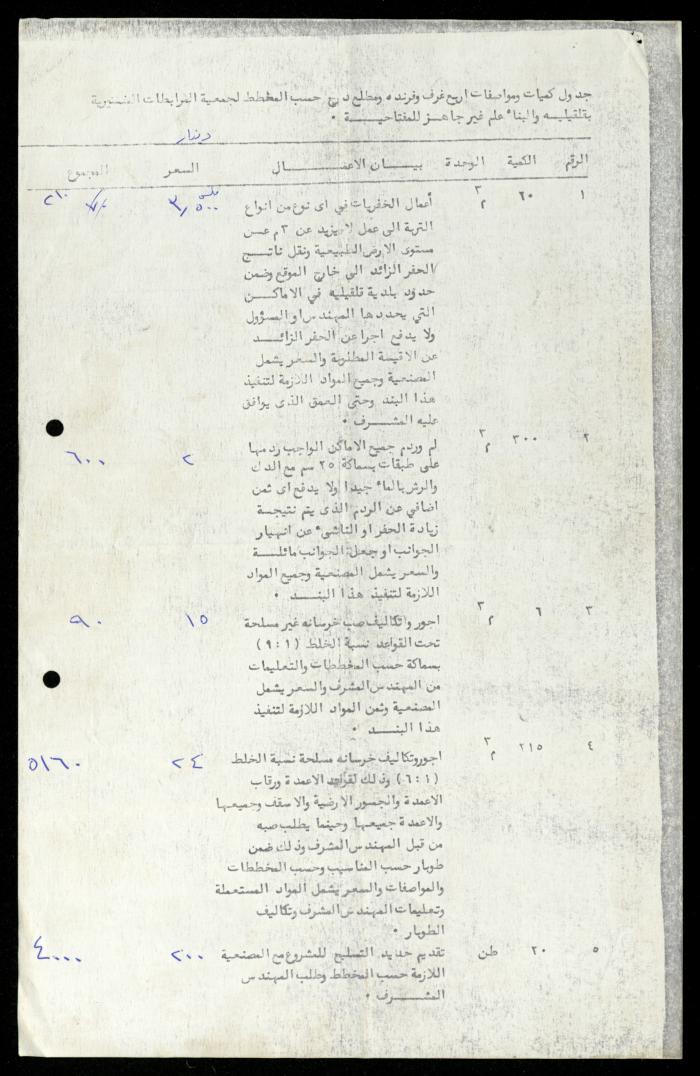 جدول كميات ومواصفات اربع غرف وفرنده ومطلع درج حسب المخطط لجمعية المرابطات الخيرية
بقلقيليه والبناء علم غير جاهز للمفتاحية .
دينار
الرقم الكمية الوحدة بيان الاعمال السعر المجموع
١ ٢٠ م٣ أعمال الحفريات في اى نوع من انواع فلس ٣,٥٠٠ ٢١٠
التربة الى عمق لا يزيد عن ٣م عن
مستوى الارض الطبيعية ونقل ناتج
الحفر الزائد الى خارج الموقع وضمن
حدود بلدية قلقيليه في الاماكن
التي يحددها المهندس او المسؤول
ولا يدفع اجرا عن الحفر الزائد
عن الاقيسة المطلوبة والسعر يشمل
المصنعية وجميع المواد اللازمة لتنفيذ
هذا البند وحتى العمق الذى يوافق
عليه المشرف .
٢ ٣٠٠ م٣ لم وردم جميع الاماكن الواجب ردمها ٢ ٦٠٠
على طبقات بسماكة ٢٥ سم مع الدك
والرش بالماء جيدا ولا يدفع اى ثمن
اضافي عن الردم الذى يتم نتيجة
زيادة الحفر او الناشىء عن انهيار
الجوانب او جعل الجوانب مائلة
والسعر يشمل المصنعية وجميع المواد
اللازمة لتنفيذ هذا البند .
٣ ٦ م٣ اجور وتكاليف صب خرسانه غير مسلحة ١٥ ٩٠
تحت القواعد نسبة الخلط (٩:١)
بسماكة حسب المخططات والتعليمات
من المهندس المشرف والسعر يشمل
المصنعية وثمن المواد اللازمة لتنفيذ
هذا البند .
٤ ٢١٥ م٣ اجور وتكاليف خرسانه مسلحة نسبة الخلط ٢٤ ٥١٦٠
(٦:١) وذلك لقواعد الاعمدة ورقاب
الاعمدة والجسور الارضية والاسقف وجميعها
والاعمدة جميعها وحينما يطلب صبه
من قبل المهندس المشرف وذلك ضمن
طوبار حسب المناسيب وحسب المخططات
والمواصفات والسعر يشمل المواد المستعملة
وتعليمات المهندس المشرف وتكاليف
الطوبار .
٥ ٢٠ طن تقديم حديد التسليح للمشروع مع المصنعية ٢٠٠ ٤٠٠٠
اللازمة حسب المخطط وطلب المهندس
المشرف .